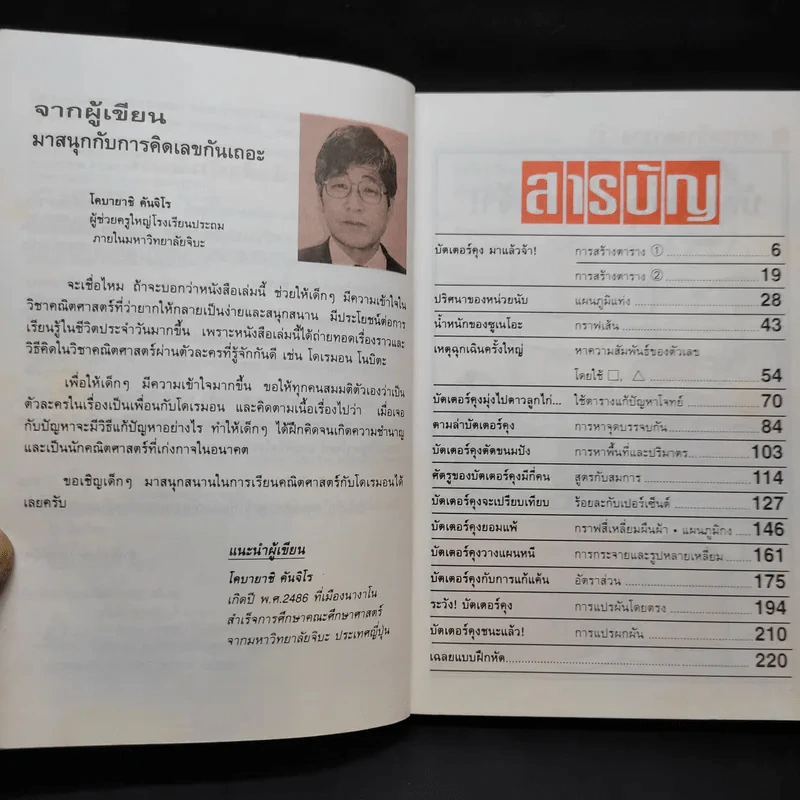 จากผู้เขียน
มาสนุกกับการคิดเลขกันเถอะ
โคบายาชิ คันจิโร
ผู้ช่วยครูใหญ่โรงเรียนประถม
ภายในมหาวิทยาลัยจิบะ
จะเชื่อไหม ถ้าจะบอกว่าหนังสือเล่มนี้ ช่วยให้เด็กๆ มีความเข้าใจใน
วิชาคณิตศาสตร์ที่ว่ายากให้กลายเป็นง่ายและสนุกสนาน มีประโยชน์ต่อการ
เรียนรู้ในชีวิตประจำวันมากขึ้น เพราะหนังสือเล่มนี้ได้ถ่ายทอดเรื่องราวและ
วิธีคิดในวิชาคณิตศาสตร์ผ่านตัวละครที่รู้จักกันดี เช่น โดเรมอน โนบิตะ
เพื่อให้เด็กๆ มีความเข้าใจมากขึ้น ขอให้ทุกคนสมมติตัวเองว่าเป็น
ตัวละครในเรื่องเป็นเพื่อนกับโดเรมอน และคิดตามเนื้อเรื่องไปว่า เมื่อเจอ
กับปัญหาจะมีวิธีแก้ปัญหาอย่างไร ทำให้เด็กๆ ได้ฝึกคิดจนเกิดความชำนาญ
และเป็นนักคณิตศาสตร์ที่เก่งกาจในอนาคต
ขอเชิญเด็กๆ มาสนุกสนานในการเรียนคณิตศาสตร์กับโดเรมอนได้
เลยครับ
แนะนำผู้เขียน
โคบายาชิ คันจิโร
เกิดปี พ.ศ.2486 ที่เมืองนางาโน
สำเร็จการศึกษาคณะศึกษาศาสตร์
จากมหาวิทยาลัยจิบะ ประเทศญี่ปุ่น
สารบัญ
บัตเตอร์คุง มาแล้วจ้า! การสร้างตาราง ① 6
การสร้างตาราง ② 19
ปริศนาของหน่วยนับ แผนภูมิแท่ง 28
น้ำหนักของซูเนโอะ กราฟเส้น 43
เหตุฉุกเฉินครั้งใหญ่ หาความสัมพันธ์ของตัวเลข
โดยใช้ □, △ 54
บัตเตอร์คุงมุ่งไปดาวลูกไก่... ใช้ตารางแก้ปัญหาโจทย์ 70
ตามล่าบัตเตอร์คุง การหาจุดบรรจบกัน 84
บัตเตอร์คุงตัดขนมปัง การหาพื้นที่และปริมาตร 103
ศัตรูของบัตเตอร์คุงมีกี่คน สูตรกับสมการ 114
บัตเตอร์คุงจะเปรียบเทียบ ร้อยละกับเปอร์เซ็นต์ 127
บัตเตอร์คุงยอมแพ้ กราฟสี่เหลี่ยมผืนผ้า • แผนภูมิกง 146
บัตเตอร์คุงวางแผนหนี การกระจายและรูปหลายเหลี่ยม 161
บัตเตอร์คุงกับการแก้แค้น อัตราส่วน 175
ระวัง! บัตเตอร์คุง การแปรผันโดยตรง 194
บัตเตอร์คุงชนะแล้ว! การแปรผกผัน 210
เฉลยแบบฝึกหัด 220